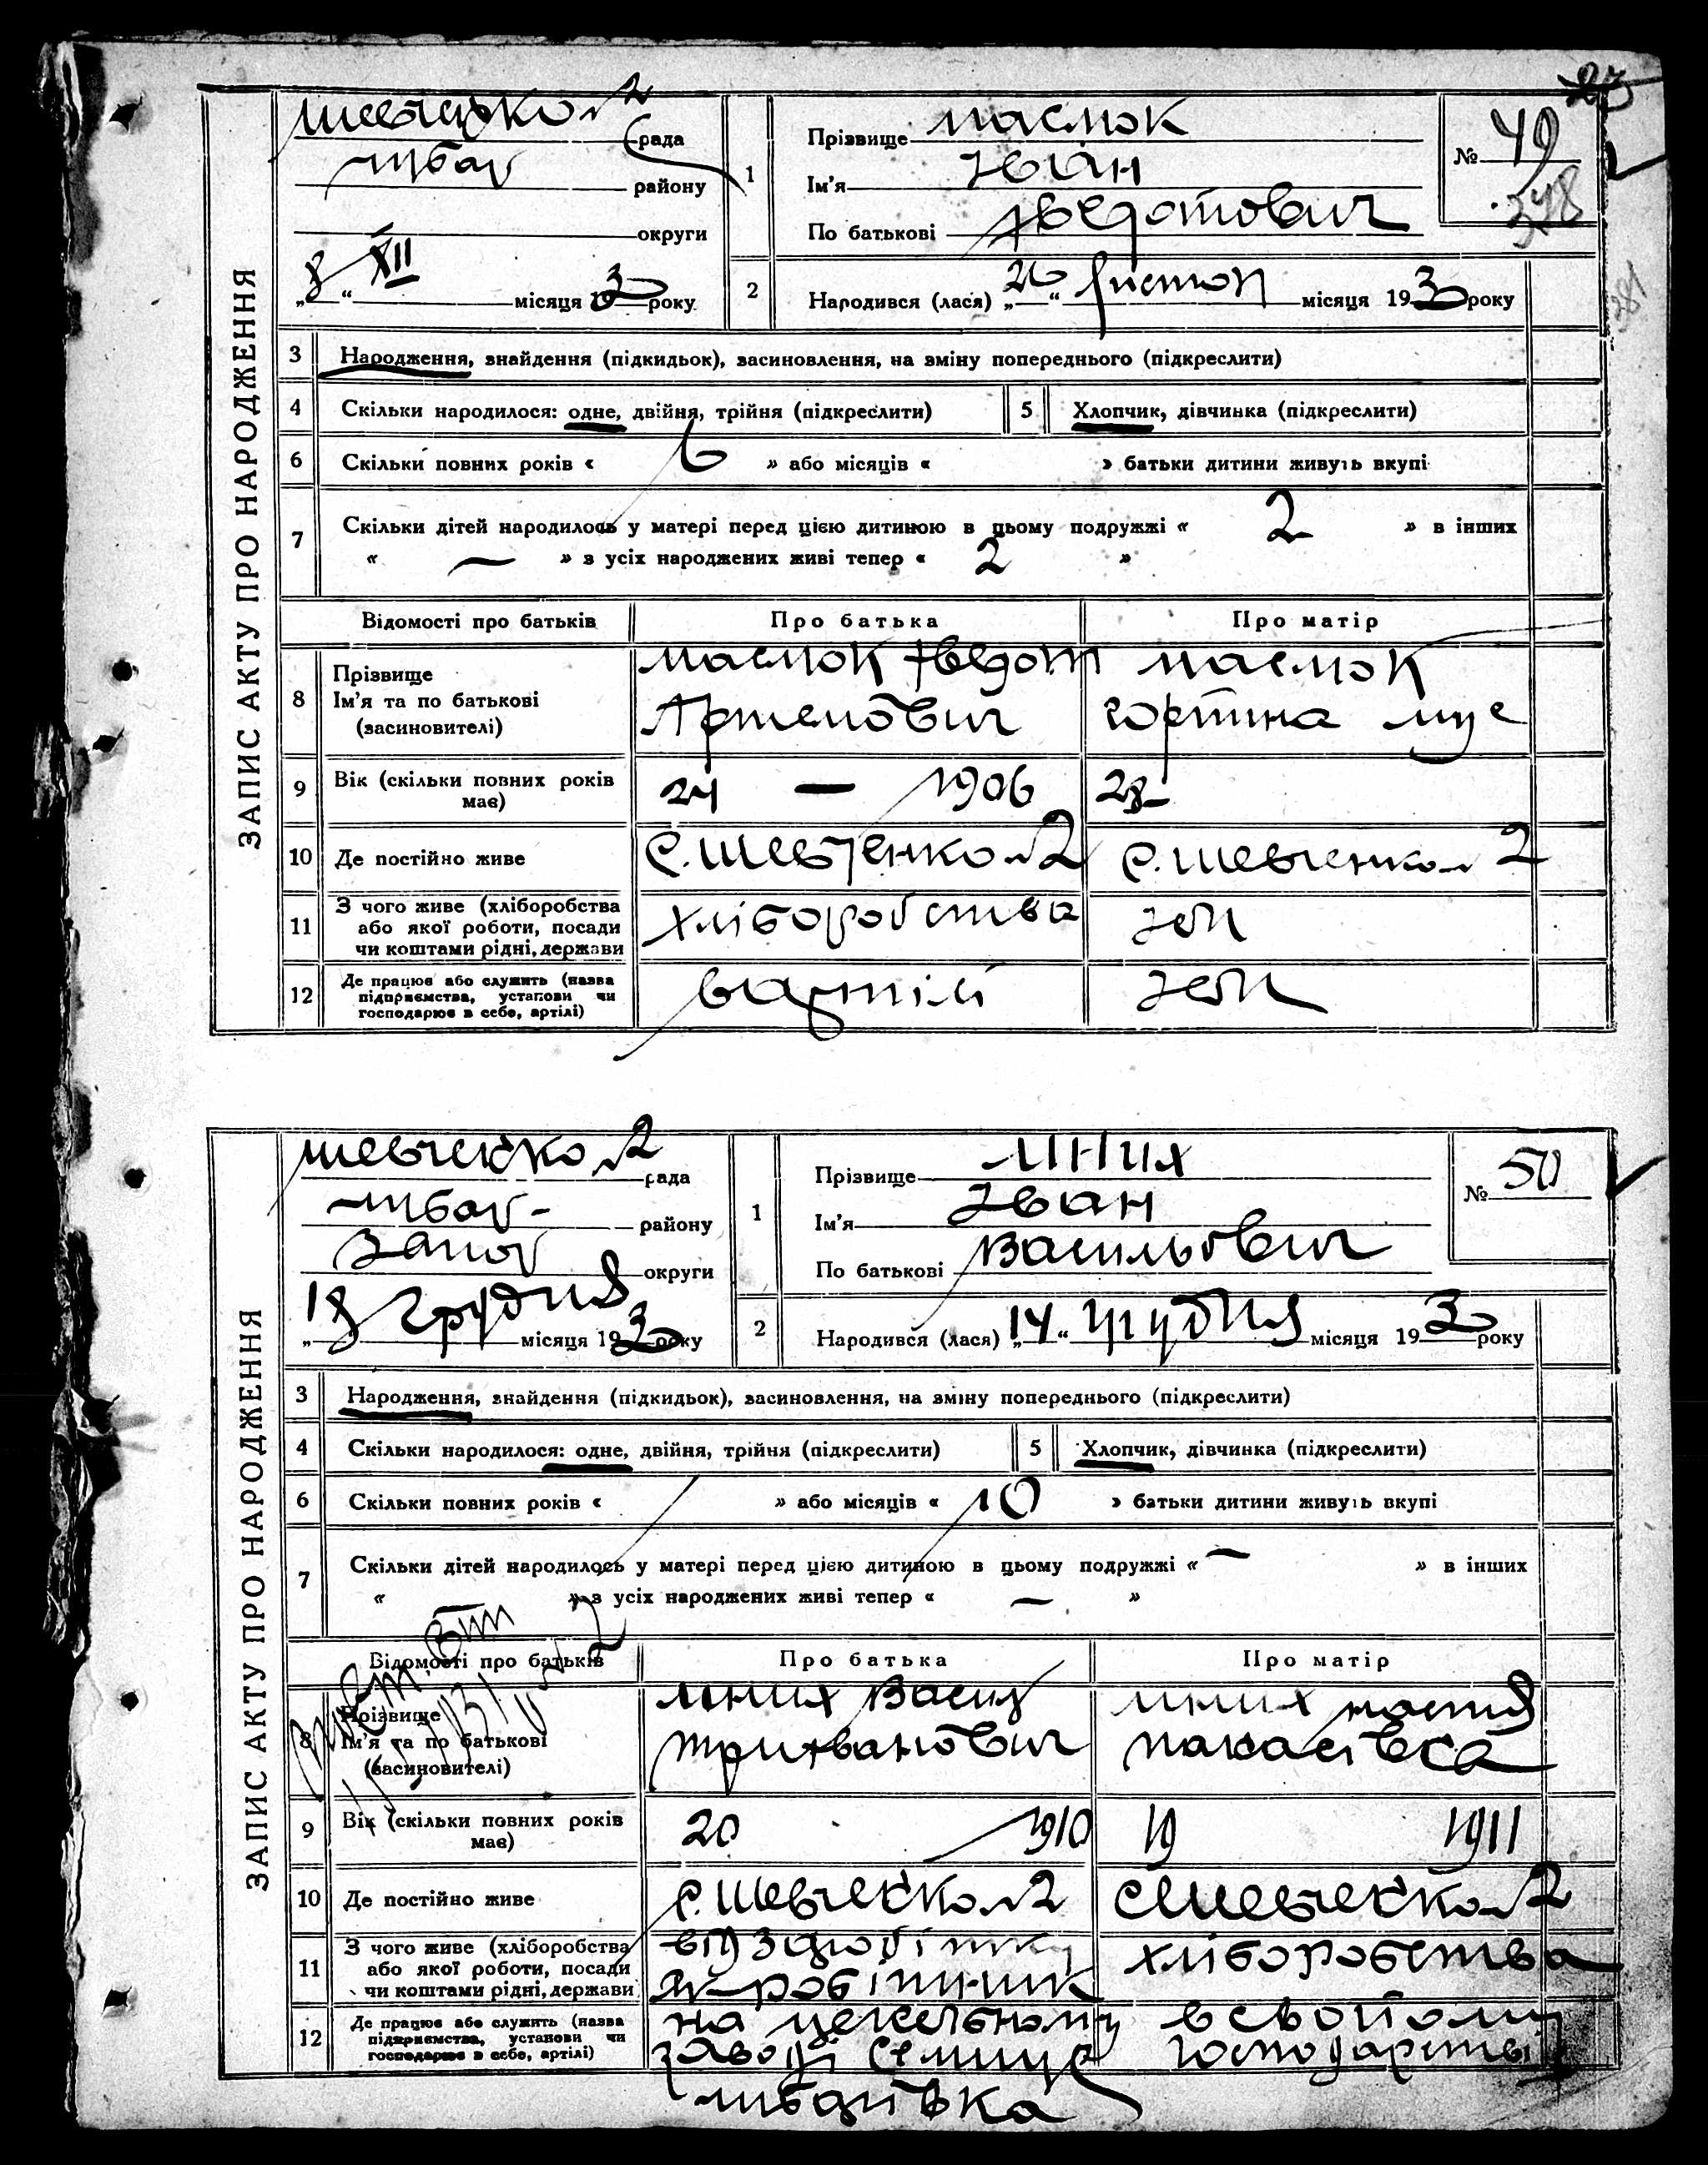 ЗАПИС АКТУ ПРО НАРОДЖЕННЯ
Шевченко №2 рада
району
округи
„8“ XII місяця 1930 року
1
Прізвище Маслюк
Ім'я Іван
По батькові Хведотович
№ 49
348
281
2
Народився (лася) „26“ листоп місяця 1930 року
3 Народження, знайдення (підкидьок), засиновлення, на зміну попереднього (підкреслити)
4 Скільки народилося: одне, двійня, трійня (підкреслити) 5 Хлопчик, дівчинка (підкреслити)
6 Скільки повних років « 6 » або місяців « » батьки дитини живуть вкупі
7 Скільки дітей народилось у матері перед цією дитиною в цьому подружжі « 2 » в інших
« — » з усіх народжених живі тепер « 2 »
Відомості про батьків Про батька Про матір
8 Прізвище Ім'я та по батькові (засновителі)
Маслюк Хведот
Артемович
Маслюк
9 Вік (скільки повних років має) 24 — 1906 23
10 Де постійно живе с. Шевченко №2 с. Шевченко №2
11 З чого живе (хліборобства або якої роботи, посади чи коштами рідні, держави хліборобства
12 Де працює або служить (назва підприємства, установи чи господарює в себе, артілі) в артілі
ЗАПИС АКТУ ПРО НАРОДЖЕННЯ
Шевченко №2 рада
району
Запор округи
„18“ грудня місяця 1930 року
1
Прізвище Мних
Ім'я Іван
По батькові Васильович
№ 50
2
Народився (лася) „14“ грудня місяця 1930 року
3 Народження, знайдення (підкидьок), засиновлення, на зміну попереднього (підкреслити)
4 Скільки народилося: одне, двійня, трійня (підкреслити) 5 Хлопчик, дівчинка (підкреслити)
6 Скільки повних років « » або місяців « 10 » батьки дитини живуть вкупі
7 Скільки дітей народилось у матері перед цією дитиною в цьому подружжі « — » в інших
« » з усіх народжених живі тепер « — »
Відомості про батьків Про батька Про матір
8 Прізвище Ім'я та по батькові (засиновителі)
Мних Васил
Трихванович
Мних Настя
9 Вік (скільки повних років має) 20 1910 19 1911
10 Де постійно живе с. Шевченко №2 с. Шевченко №2
11 З чого живе (хліборобства або якої роботи, посади чи коштами рідні, держави
від заробітку
як робітник
хліборобства
12 Де працює або служить (назва підприємства, установи чи господарює в себе, артілі)
на цегельному
заводі
в свойому
господарстві